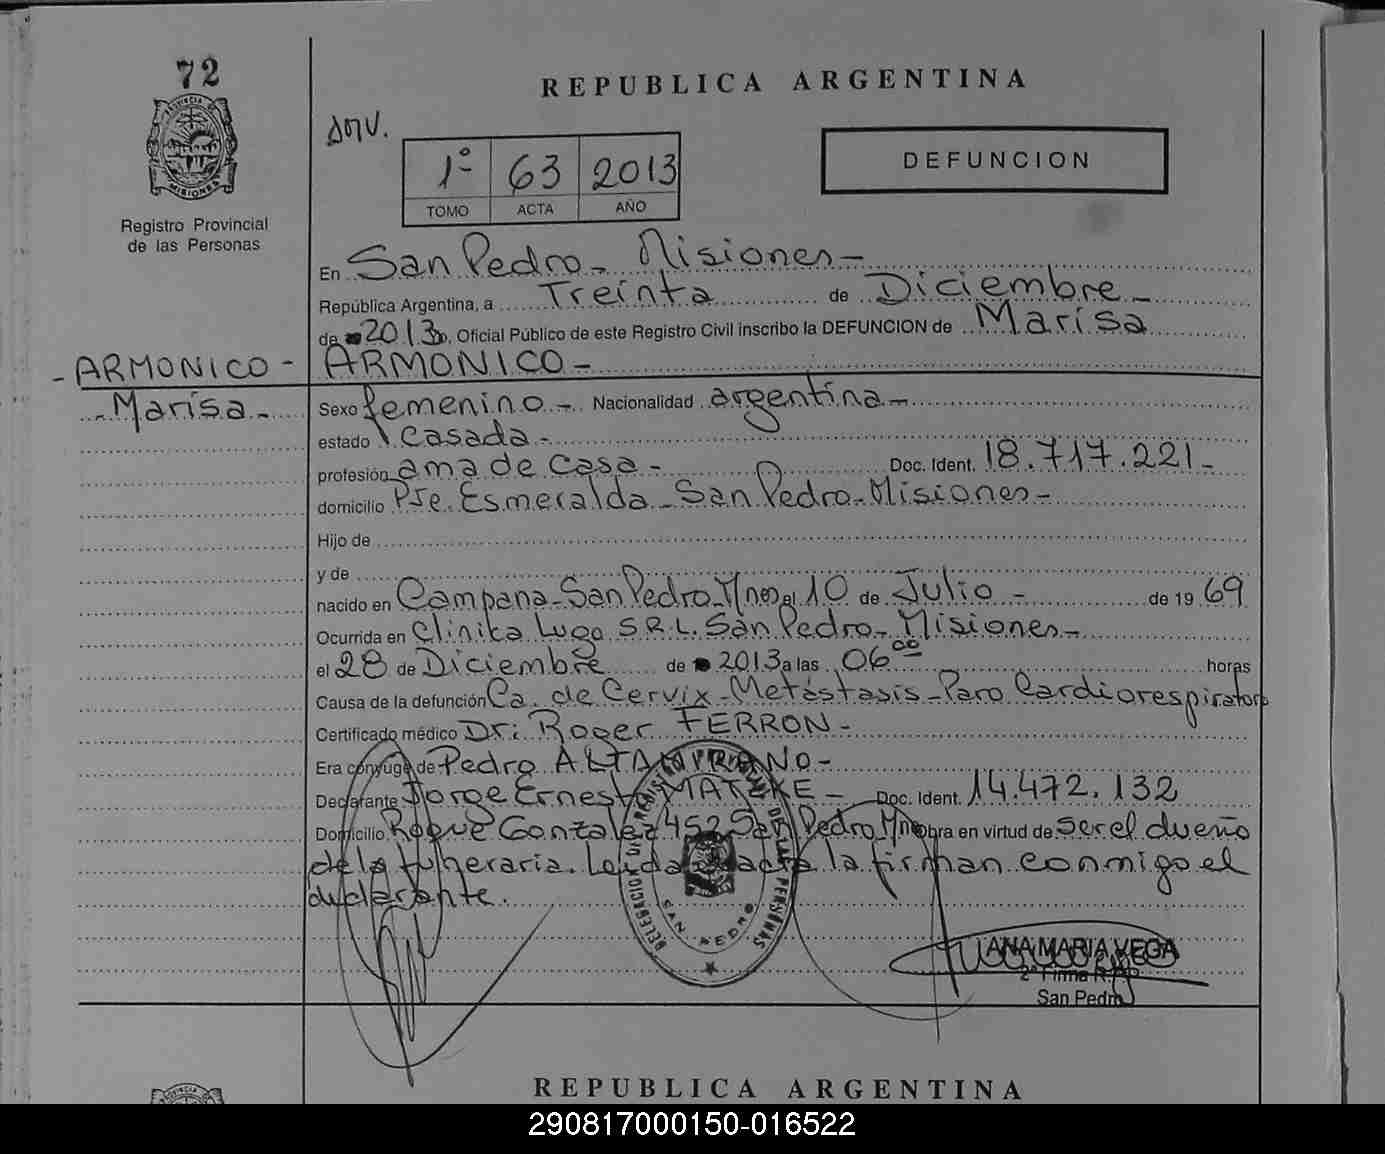 72
PROVINCIA DE
MISIONES
Registro Provincial
de las Personas
REPUBLICA ARGENTINA
1º 63 2013
TOMO ACTA AÑO
DEFUNCION
En San Pedro - Misiones -
República Argentina, a Treinta de Diciembre -
de 2013 Oficial Público de este Registro Civil inscribo la DEFUNCION de Marisa
- ARMONICO - ARMONICO -
- Marisa - Sexo femenino - Nacionalidad argentina -
estado casada -
profesión ama de casa - Doc. Ident. 18.717.221 -
domicilio Pje. Esmeralda - San Pedro - Misiones -
Hijo de
y de
nacido en Campana - San Pedro - Mnes el 10 de Julio - de 19 69
Ocurrida en Clinika Lugo S.R.L. San Pedro - Misiones -
el 28 de Diciembre de 2013 a las 06 00 horas
Causa de la defunción Ca. de Cervix - Metástasis - Paro Cardiorespiratorio
Certificado médico Dr: Roger FERRON -
Era cónyuge de Pedro ALTAMIRANO -
Declarante Jorge Ernesto MATZKE - Doc. Ident. 14.472.132
Domicilio Roque Gonzalez 452 San Pedro Mnes Obra en virtud de ser el dueño
de la funeraria. Leida el acta la firman conmigo el
declarante.
DELEGACION REGISTRO PROVINCIAL DE LAS PERSONAS
SAN PEDRO
ANA MARIA VEGA
2ª Firma R.P.P.
San Pedro
REPUBLICA ARGENTINA
PROVINCIA DE
290817000150-016522